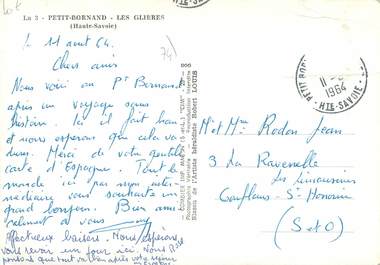 La 3 - PETIT-BORNAND - LES GLIERES
(Haute-Savoie)
Le 11 aout 64.
Chers amis
Nous voici au Pt Bornand
après un voyage sans
histoire. Ici il fait beau
et nous espérons que cela va
durer. Merci de votre gentille
carte d'Espagne. Tout le
monde ici par mon inter-
médiaire vous souhaite un
grand bonjour. Bien ami-
calement à vous
Affectueux baisers. Nous espérons
vous revoir un jour ici. Nous
pensons que tout va bien après votre séjour
(74)
Robert LOUIS
PETIT BOR
11 -
1964
HTE-SAVOIE
Mr et Mme Rodon Jean
3 La Ravenelle
les Limousines
Conflans-St-Honorine
(S et O)